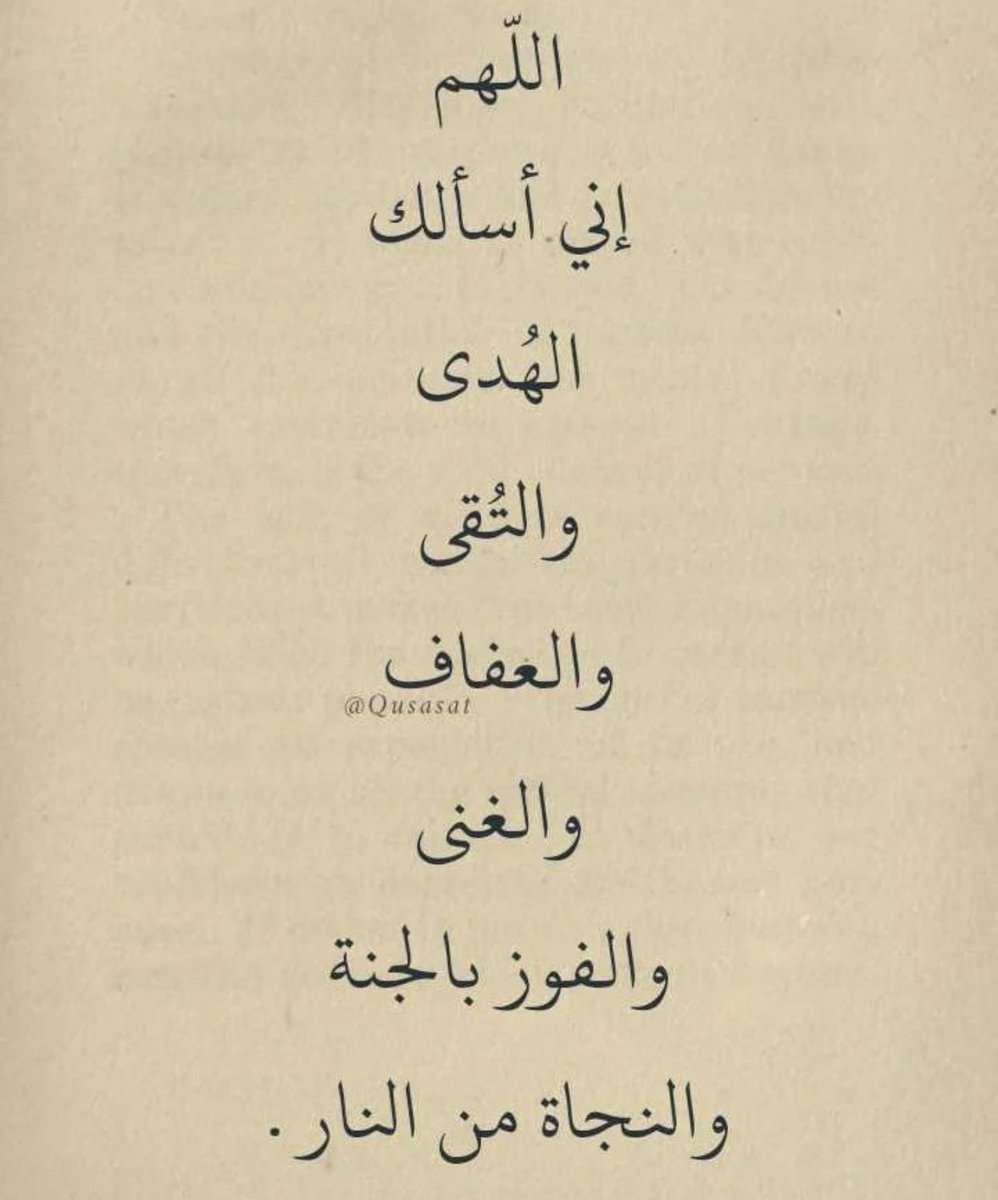 اللّهم
إني أسألك
الهُدى
والتُقى
والعفاف
@Qusasat
والغنى
والفوز بالجنة
والنجاة من النار .